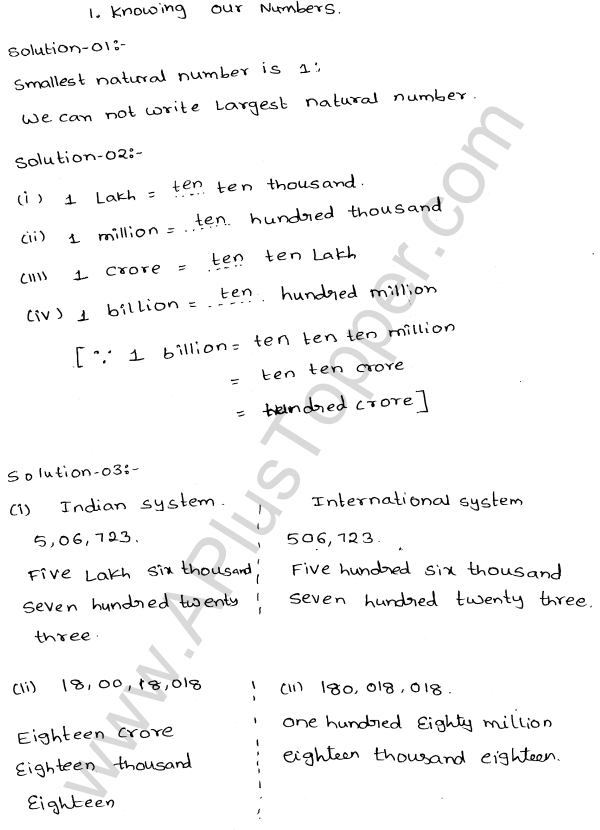 1. Knowing our Numbers.
Solution-01:-
Smallest natural number is 1:
We can not write Largest natural number.
Solution-02:-
(i) 1 Lakh = ten ten thousand.
(ii) 1 million = ten hundred thousand
(iii) 1 crore = ten ten Lakh
(iv) 1 billion = ten hundred million
[∵ 1 billion = ten ten ten million
= ten ten crore
= hundred crore]
Solution-03:-
(i) Indian system.
5,06,723.
Five Lakh six thousand
seven hundred twenty
three.
International system
506,723.
Five hundred six thousand
seven hundred twenty three.
(ii) 18,00,18,018
Eighteen crore
Eighteen thousand
Eighteen
(ii) 180,018,018.
one hundred Eighty million
eighteen thousand eighteen.
www.APlusTopper.com